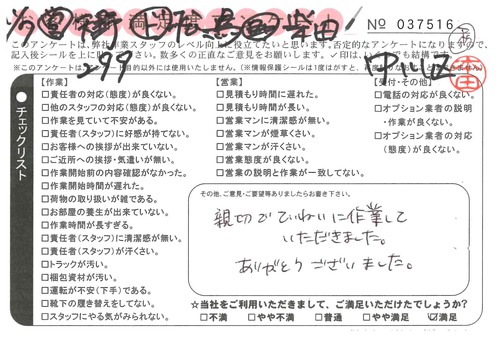 No 037516
このアンケートは、弊社作業スタッフのレベル向上に役立てたいと思います。否定的なアンケートになりますので、
299
チェックリスト
【作業】
□責任者の対応(態度)が良くない。
□他のスタッフの対応(態度)が良くない。
□作業を見ていて不安がある。
□責任者(スタッフ)に好感が持てない。
□お客様への挨拶が出来ていない。
□ご近所への挨拶・気遣いが無い。
□作業開始前の内容確認がなかった。
□作業開始時間が遅れた。
□荷物の取り扱いが雑である。
□お部屋の養生が出来ていない。
□作業時間が長すぎる。
□責任者(スタッフ)に清潔感が無い。
□責任者(スタッフ)が汗くさい。
□トラックが汚い。
□梱包資材が汚い。
□運転が不安(下手)である。
□靴下の履き替えをしてない。
□スタッフにやる気がみられない。
【営業】
□見積もり時間に遅れた。
□見積もり時間が長い。
□営業マンに清潔感が無い。
□営業マンが煙草くさい。
□営業マンが汗くさい。
□営業態度が良くない。
□営業の説明と作業が一致してない。
【受付・その他】
□電話の対応が良くない。
□オプション業者の説明
・作業が良くない。
□オプション業者の対応
(態度)が良くない。
その他、ご意見・ご要望等ありましたらお書き下さい。
親切でていねいに作業して
いただきました。
ありがとうございました。
☆当社をご利用いただきまして、ご満足いただけたでしょうか?
□不満 □やや不満 □普通 □やや満足 ☑満足